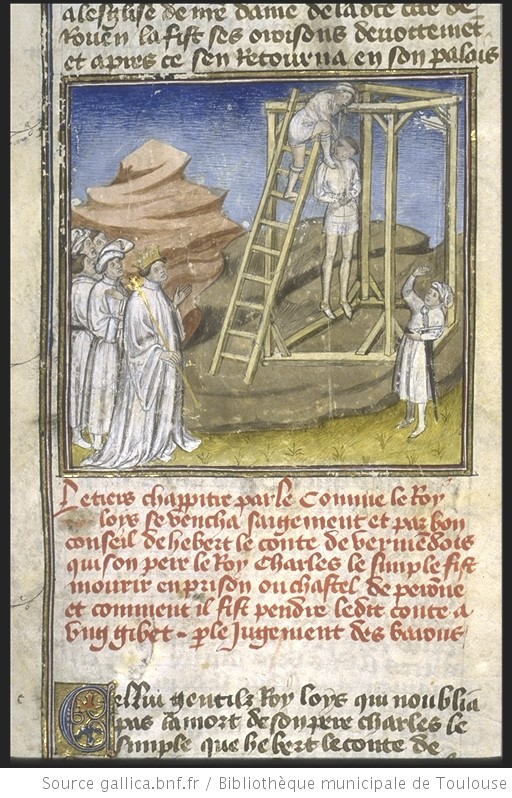 alesglise de n̄re dame de la dite cite de
Rouen la fist ses oroisons devotteme͂t
et apres ce sen Retourna en son palais
Le tiers chappitre parle Comme le Roy
loys se vencha saigement et par bon
conseil de hebert le conte de vermendois
qui son pere le Roy Charles le simple fist
mourir en prison ou chastel de perone
et comment il fist pendre ledit conte a
vng gibet - p̲ le Jugement des barons
Cellui gentilz Roy loys qui noublia
pas la mort de son pere charles le
simple que hebert le conte de
Source gallica.bnf.fr / Bibliothèque municipale de Toulouse